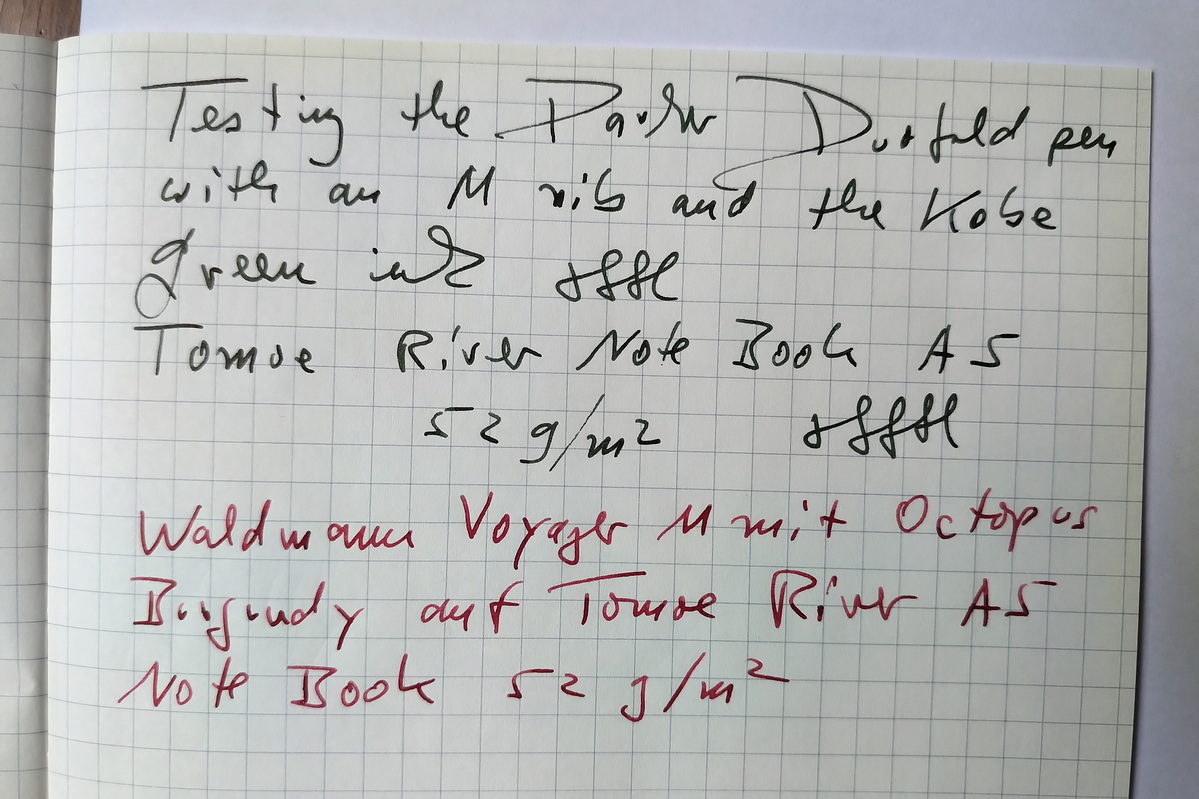 Testing the Parker Duofold pen
with an M nib and the Kobe
green ink
Tomoe River Note Book A5
52 g/m²
Waldmann Voyager M mit Octopus
Burgundy auf Tomoe River A5
Note Book 52 g/m²